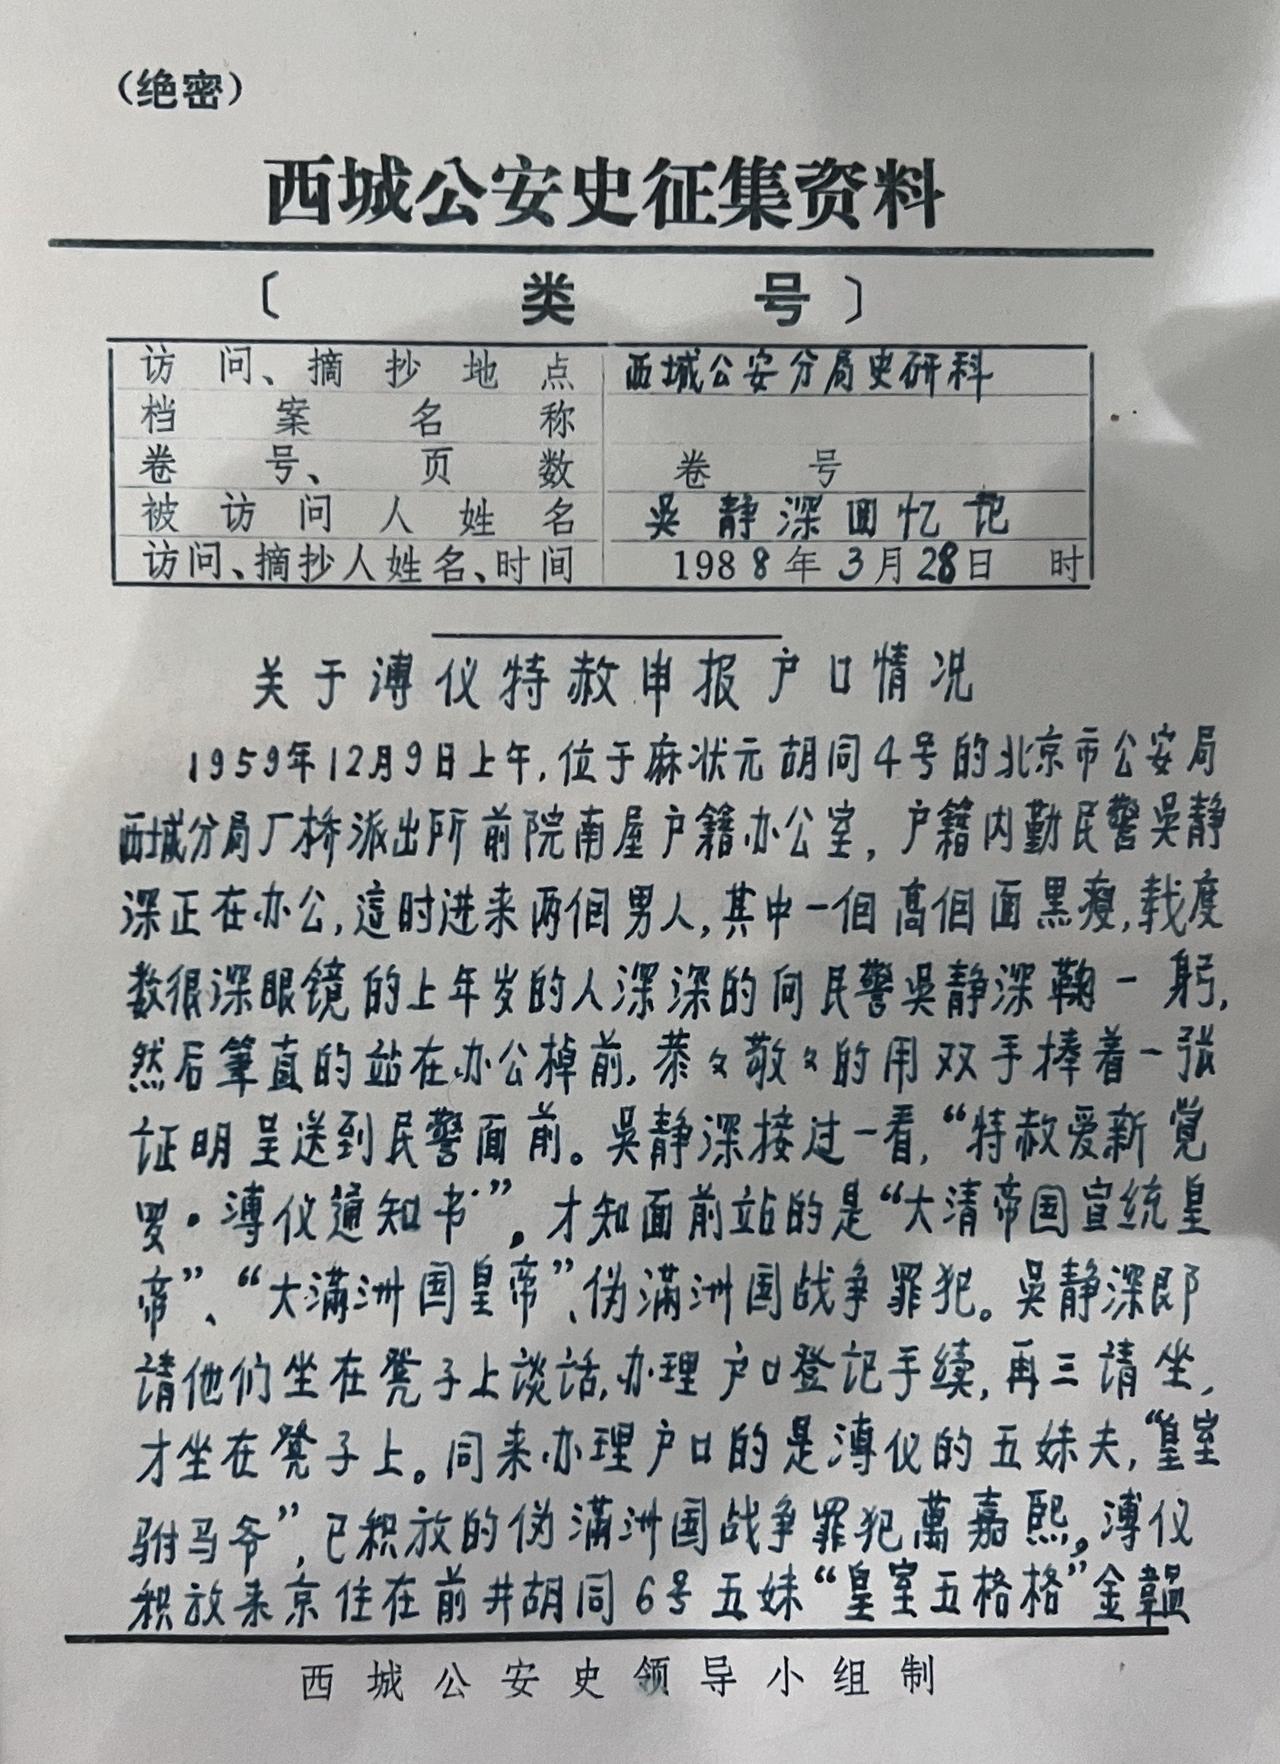 （绝密）
西城公安史征集资料
〔 类 号〕
访问、摘抄地点 西城公安分局史研科
档案名称
卷号、页数 卷号
被访问人姓名 吳静深回忆记
访问、摘抄人姓名、时间 1988年3月28日 时
关于溥仪特赦申报户口情况
1959年12月9日上午，位于麻状元胡同4号的北京市公安局
西城分局厂桥派出所前院南屋户籍办公室，户籍内勤民警吳静
深正在办公，這时进来两個男人，其中一個高個面黑瘦，载度
数很深眼镜的上年岁的人深深的向民警吳静深鞠一躬，
然后筆直的站在办公棹前，恭々敬々的用双手捧着一张
证明呈送到民警面前。吳静深接过一看，“特赦爱新覚
罗·溥仪通知书”，才知面前站的是“大清帝国宣统皇
帝”、“大满洲国皇帝”、伪满洲国战争罪犯。吳静深即
请他们坐在凳子上谈话，办理户口登记手续，再三请坐，
才坐在凳子上。同来办理户口的是溥仪的五妹夫，“皇室
驸马爷”，已积放的伪满洲国战争罪犯萬嘉熙，溥仪
积放来京住在前井胡同6号五妹“皇室五格格”金韞
西城公安史领导小组制